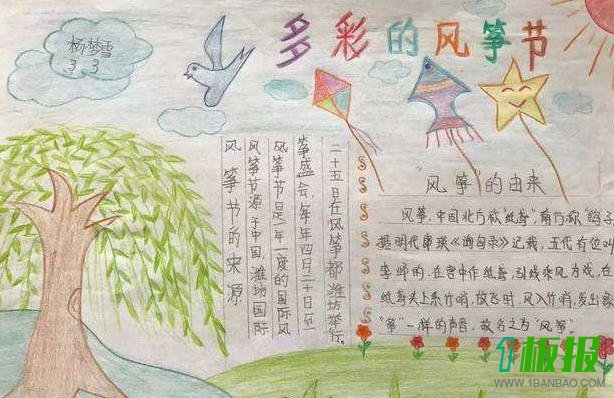 杨梦雪
3 3
多彩的风筝节
风筝节的来源
风筝节源于中国,潍坊国际
风筝节是一年一度的国际风
筝盛会,每年四月二十日至
二十五日在风筝都潍坊举行。
"风筝"的由来
风筝,中国北方称"纸鸢",南方称
据明代《询刍录》记载,五代有位叫
李邺的,在宫中作纸鸢,引线乘风为戏,在
纸鸢头上系竹哨,放飞时,风入竹哨,发出
"筝"一样的声音,故名之为"风筝"。
1板报
WWW.1BANBAO.COM